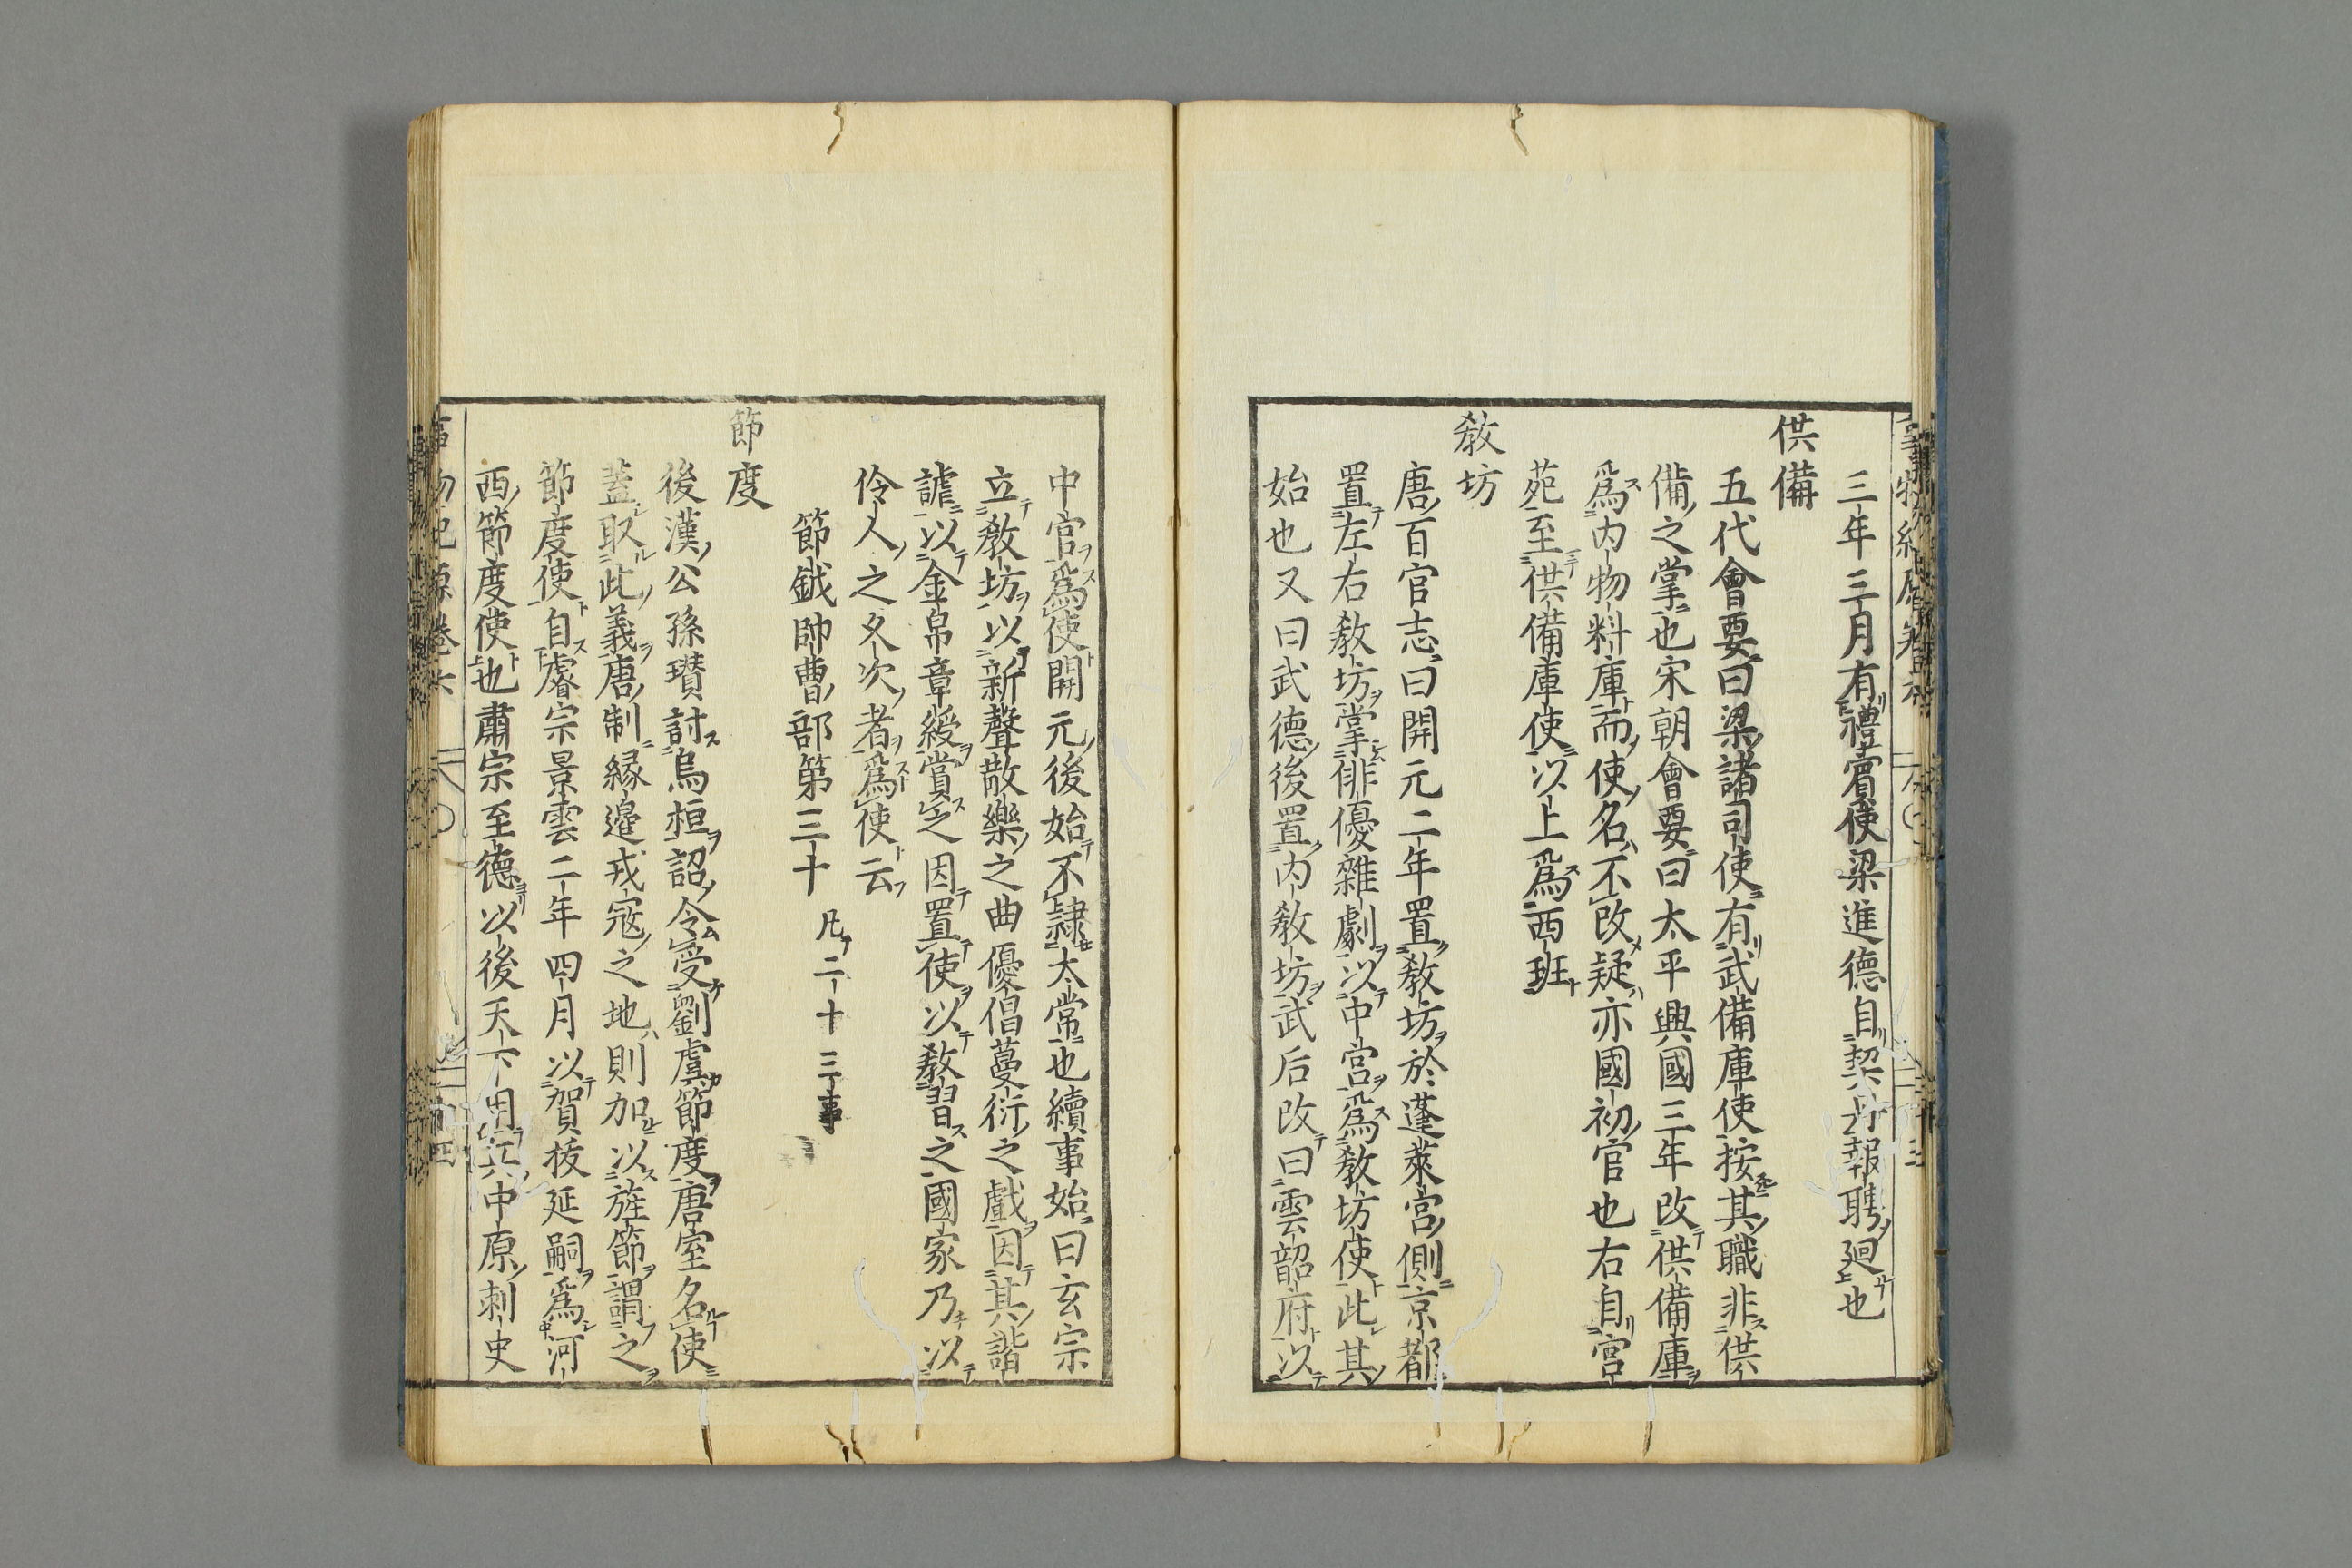 三年三月有禮賓使梁進德自契丹報聘廻也
供備
五代會要曰梁諸司使有武備庫使按其職非供
備之掌也宋朝會要曰太平興國三年改供備庫
爲内物料庫而使名不改疑亦國初官也右自宮
苑至供備庫使以上爲西班
教坊
唐百官志曰開元二年置教坊於蓬萊宮側京都
置左右教坊掌俳優雜劇以中宮爲教坊使此其
始也又曰武德後置内教坊武后改曰雲韶府以
中官爲使開元後始不隷太常也續事始曰玄宗
立教坊以新聲散樂之曲優倡蔓衍之戲因其諧
謔以金帛章綬賞之因置使以教習之國家乃以
伶人之久次者爲使云
節鉞帥曹部第三十 凡二十三事
節度
後漢公孫瓚討烏桓詔令受劉虞節度唐室名使
蓋取此義唐制緣邊戎寇之地則加以旌節謂之
節度使自睿宗景雲二年四月以賀拔延嗣爲河
西節度使也肅宗至德以後天下用兵中原刺史